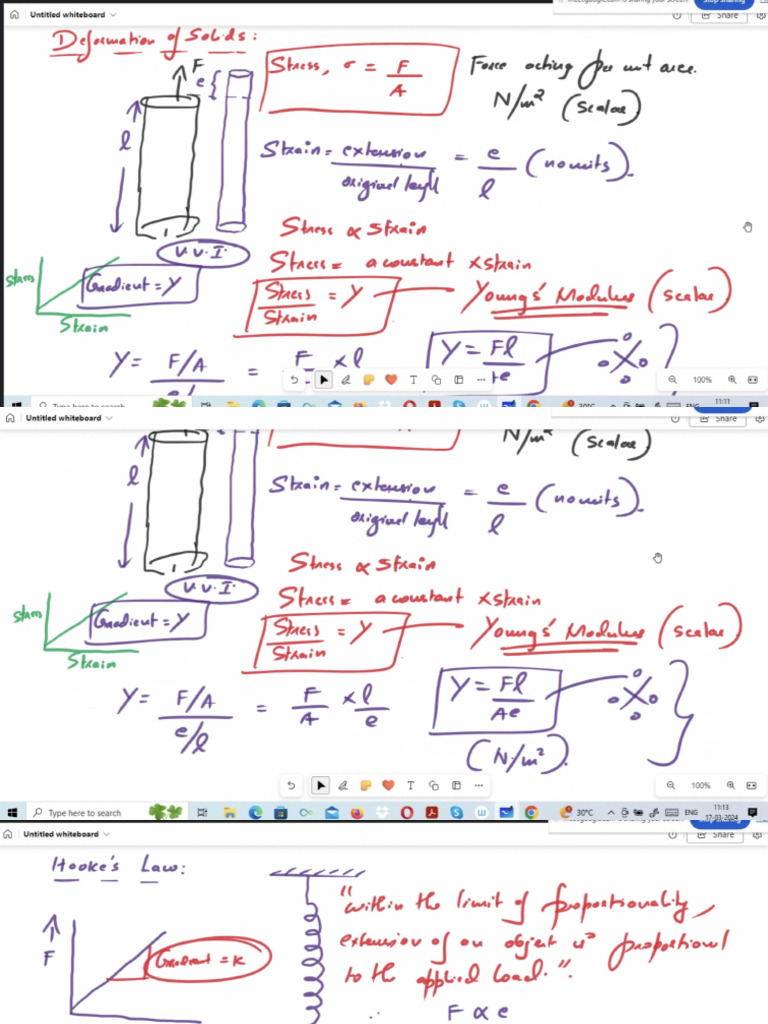 Untitled whiteboard
Share
Deformation of Solids:
F
e
l
Stress, σ = F/A
Force acting per unit area.
N/m² (Scalar)
Strain = extension/original length = e/l (no units).
Stress ∝ Strain
V.V.I.
Stress = a constant × strain
Stress
Gradient = Y
Strain
Stress/Strain = Y
Young's Modulus (scalar)
Y = F/A = F × l
Y = Fl
100%
Type here to search
30°C
ENG
11:11
Untitled whiteboard
Share
N/m² (Scalar)
l
Strain = extension/original length = e/l (no units).
Stress ∝ Strain
V.V.I.
Stress = a constant × strain
Stress
Gradient = Y
Strain
Stress/Strain = Y
Young's Modulus (scalar)
Y = F/A / e/l = F/A × l/e
Y = Fl/Ae
(N/m²).
100%
Type here to search
30°C
ENG
11:13
17-03-2024
Untitled whiteboard
Share
Hooke's Law:
"within the limit of proportionality,
extension of an object is proportional
to the applied load."
F
Gradient = K
∴ F ∝ e